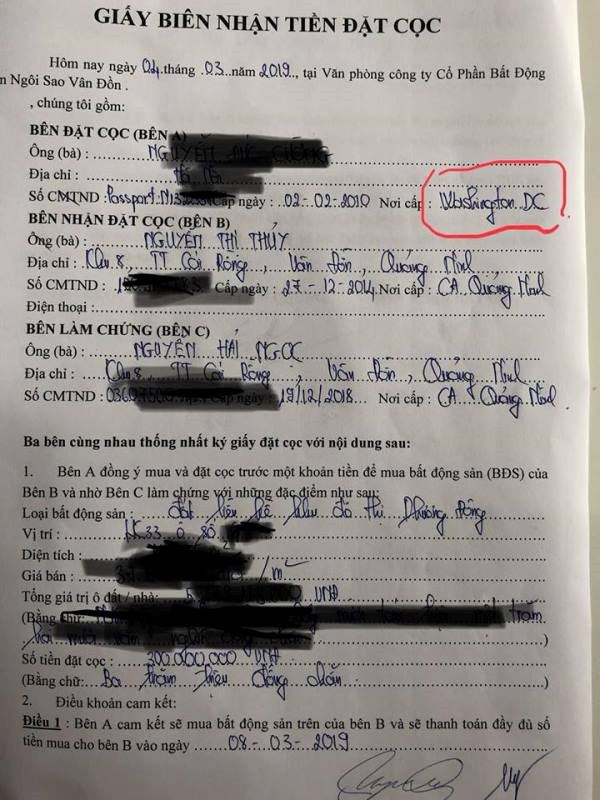 GIẤY BIÊN NHẬN TIỀN ĐẶT CỌC
Hôm nay ngày 04 tháng 03 năm 2019, tại Văn phòng công ty Cổ Phần Bất Động
n Ngôi Sao Vân Đồn .
, chúng tôi gồm:
BÊN ĐẶT CỌC (BÊN A)
Ông (bà) : NGUYỄN
Địa chỉ :
Số CMTND : Passport Cấp ngày : 02-02-2010 Nơi cấp : Washington DC
BÊN NHẬN ĐẶT CỌC (BÊN B)
Ông (bà) : NGUYỄN THỊ THỦY
Địa chỉ : Khu 8, TT Cái Rồng, Vân Đồn, Quảng Ninh
Số CMTND : Cấp ngày : 27-12-2014 Nơi cấp : CA Quảng Ninh
Điện thoại :
BÊN LÀM CHỨNG (BÊN C)
Ông (bà) : NGUYỄN HẢI NGỌC
Địa chỉ : Khu 8, TT Cái Rồng, Vân Đồn, Quảng Ninh
Số CMTND : Cấp ngày : 19/12/2018 Nơi cấp : CA Quảng Ninh
Ba bên cùng nhau thống nhất ký giấy đặt cọc với nội dung sau:
1. Bên A đồng ý mua và đặt cọc trước một khoản tiền để mua bất động sản (BĐS) của
Bên B và nhờ Bên C làm chứng với những đặc điểm như sau:
Loại bất động sản : đất liền kề khu đô thị Phương Đông
Vị trí : LK33 ô số
Diện tích :
Giá bán : /m²
Tổng giá trị ô đất / nhà: VNĐ
(Bằng chữ: trăm
)
Số tiền đặt cọc : 300.000.000 VNĐ
(Bằng chữ: Ba trăm triệu đồng chẵn )
2. Điều khoản cam kết:
Điều 1 : Bên A cam kết sẽ mua bất động sản trên của bên B và sẽ thanh toán đầy đủ số
tiền mua cho bên B vào ngày 08-03-2019